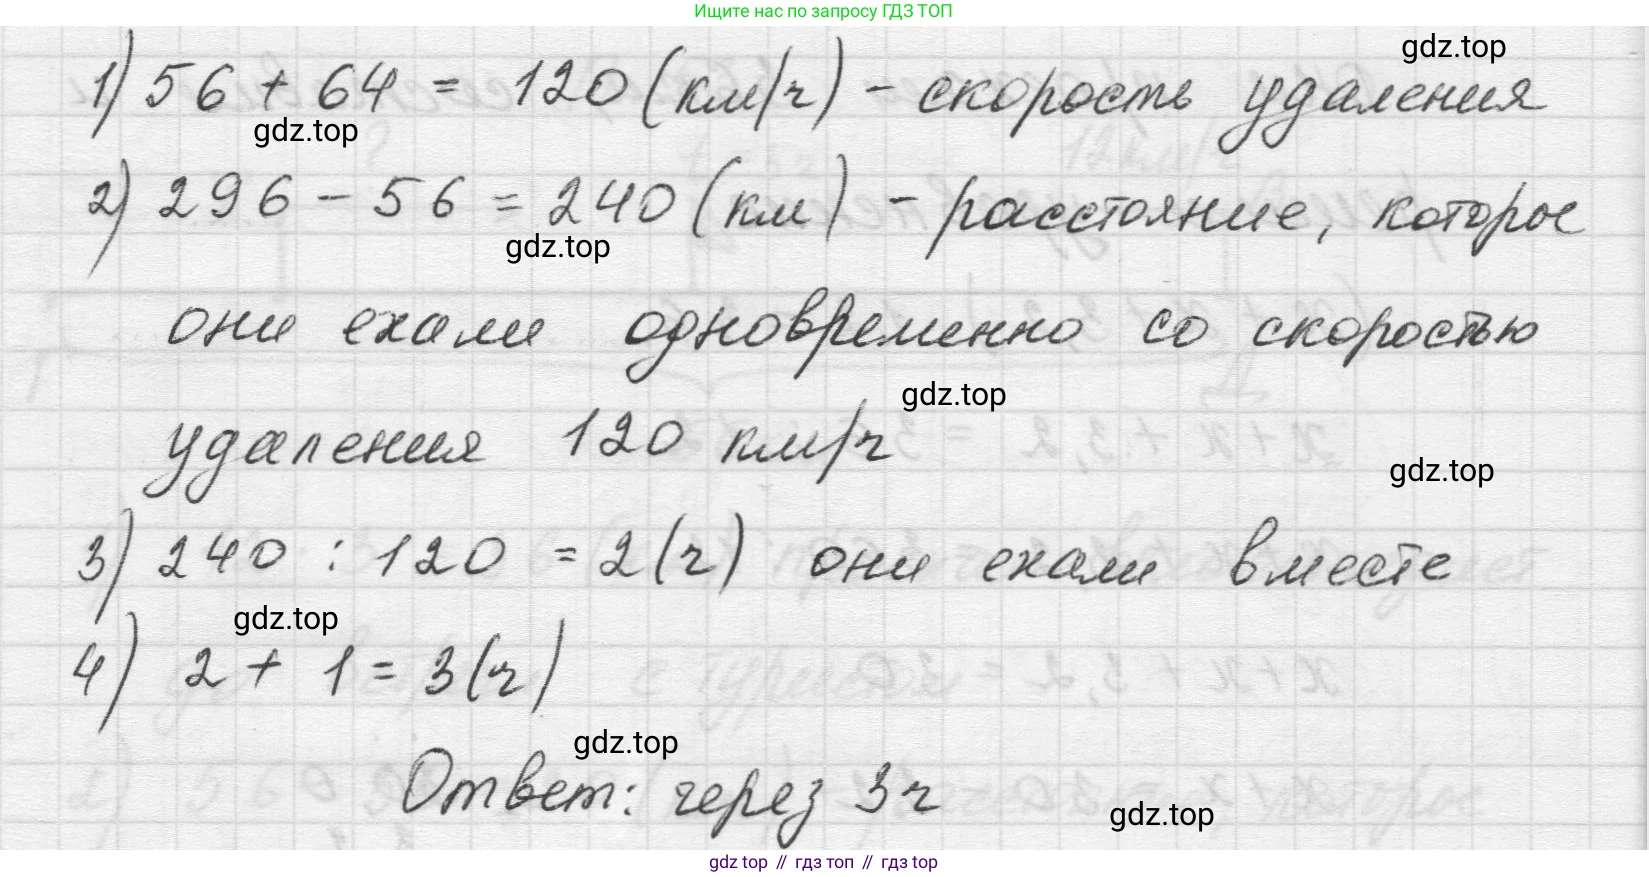 Ищите нас по запросу ГДЗ ТОП
gdz.top
1) 56 + 64 = 120 (км/ч) - скорость удаления
gdz.top
2) 296 - 56 = 240 (км) - расстояние, которое
gdz.top
они ехали одновременно со скоростью
gdz.top
удаления 120 км/ч
gdz.top
3) 240 : 120 = 2 (ч) они ехали вместе
gdz.top
4) 2 + 1 = 3 (ч)
gdz.top
Ответ: через 3 ч
gdz.top
gdz top // гдз топ // gdz top